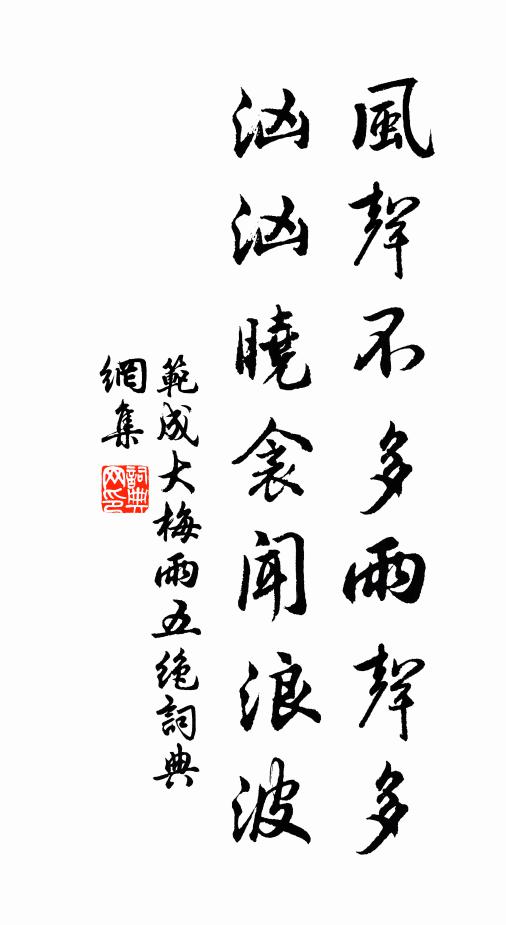 風聲不多雨聲多
洶洶曉衾聞浪波
範成大梅雨五絕詞典
網集
詞典
网印